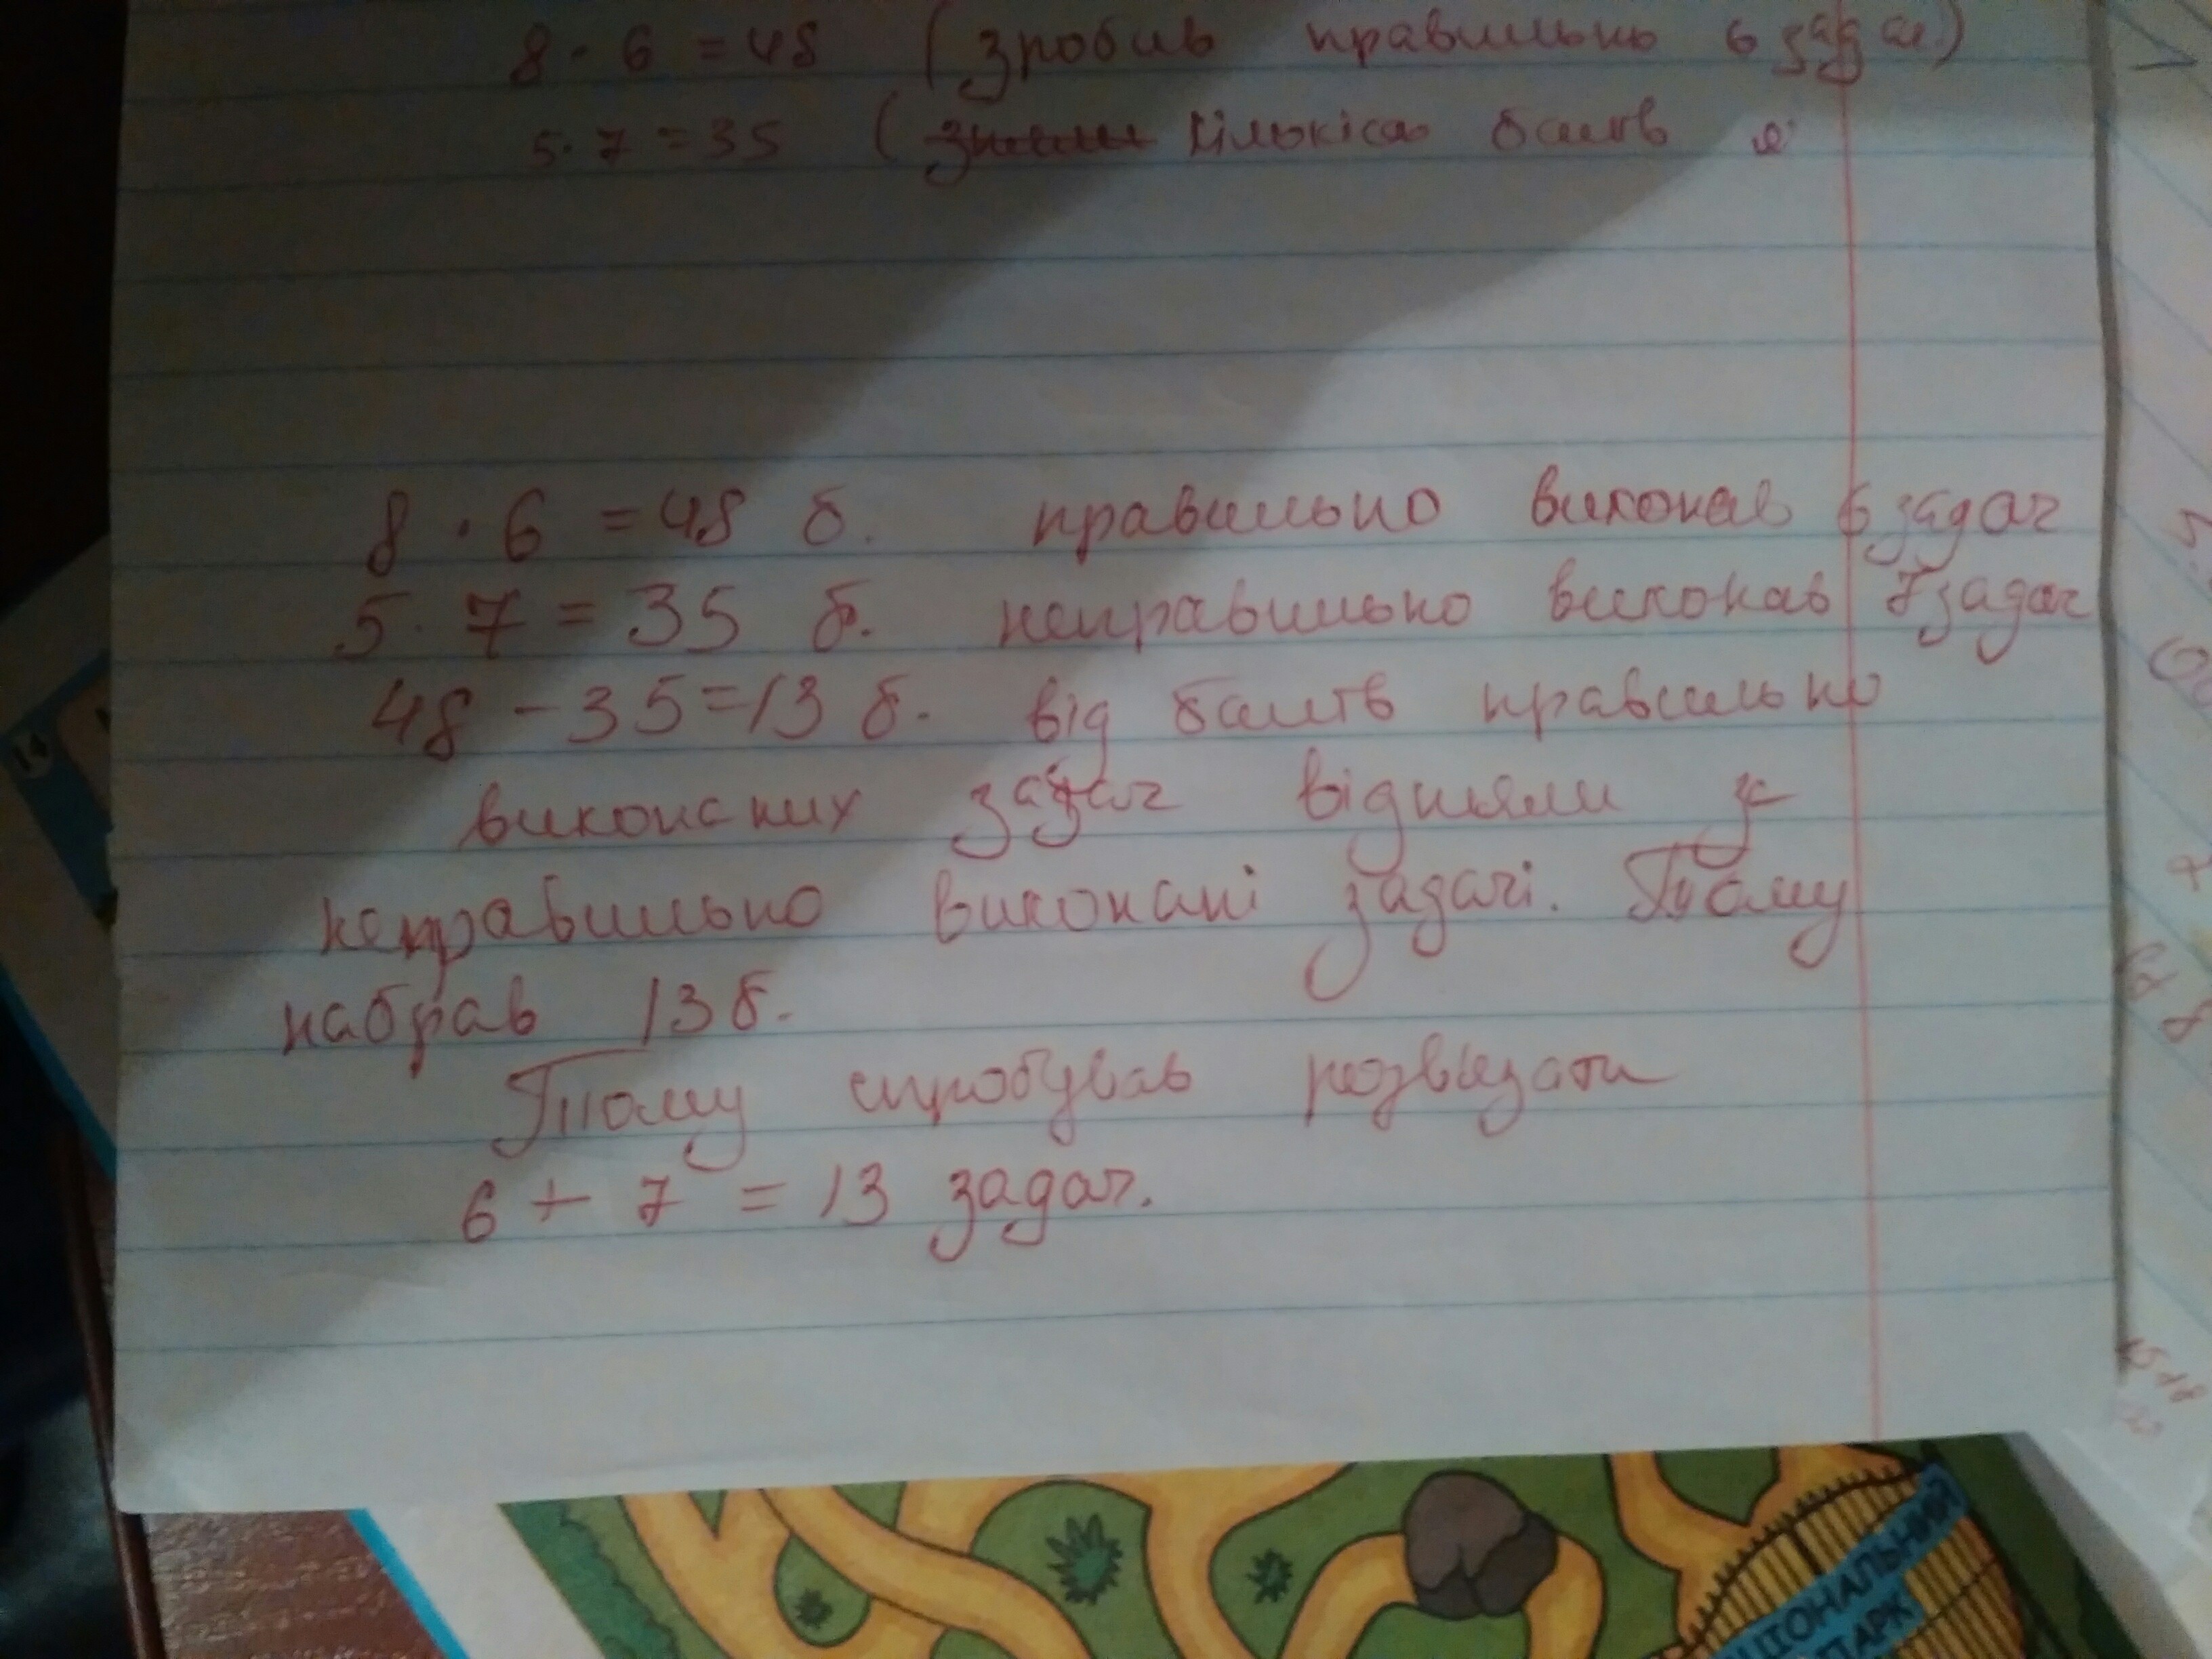 8 · 6 = 48 (зробив правильно 6 задач.)
5 · 7 = 35 ( кількість балів
8 · 6 = 48 б. правильно виконав 6 задач
5 · 7 = 35 б. неправильно виконав 7 задач
48 - 35 = 13 б. від балів правильно
виконаних задач відняли за
неправильно виконані задачі. Тому
набрав 13 б.
Тому спробував розвязати
6 + 7 = 13 задач.
14
ЦІОНАЛЬНИЙ
ПАРК